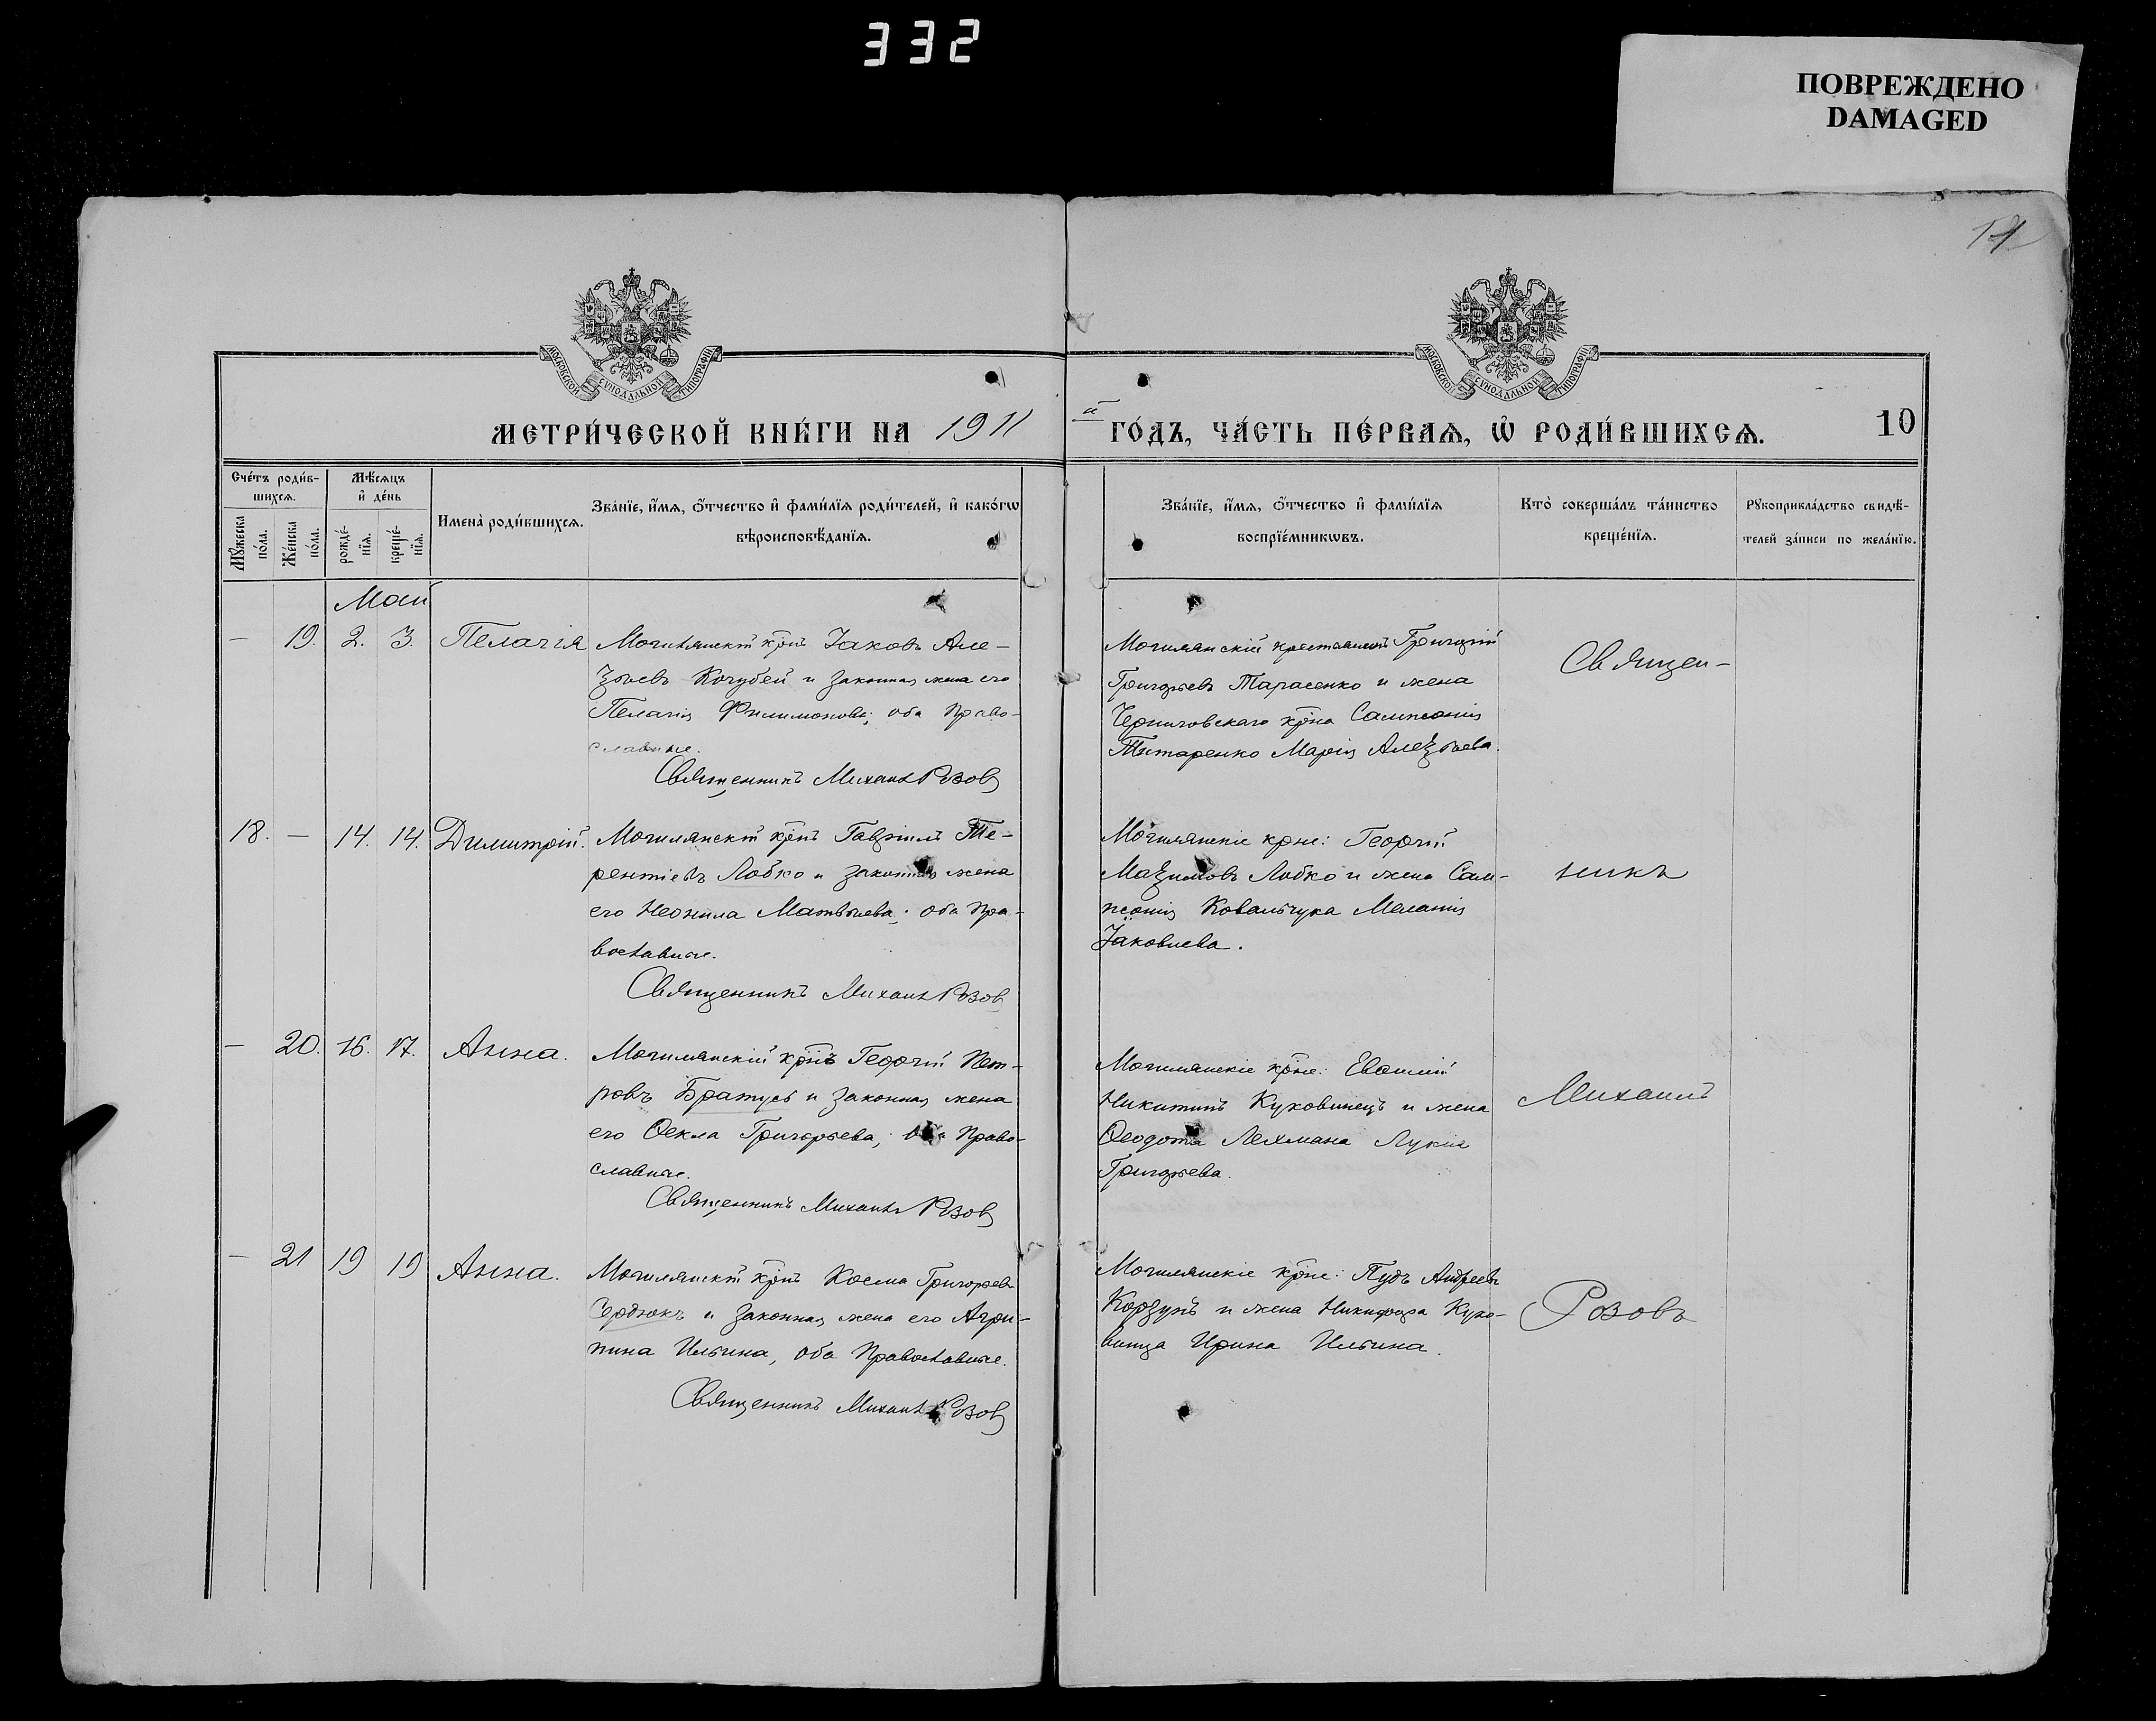 332
ПОВРЕЖДЕНО
DAMAGED
МОСКОВСКОЙ СѴНОДАЛЬНОЙ ТИПОГРАФІИ
МОСКОВСКОЙ СѴНОДАЛЬНОЙ ТИПОГРАФІИ
МЕТРИ́ЧЕСКОЙ КНИ́ГИ НА 1911
й ГО́ДЪ, ЧА́СТЬ ПЕ́РВАѦ, Ѡ҆ РОДИ́ВШИХСѦ.
10
Сче́тъ роди́в-
шихсѧ.
Мꙋ́жеска по́ла.
Же́нска по́ла.
Мѣ́сѧцъ
и҆ де́нь
рожде́-
нїѧ.
креще́-
нїѧ.
Имена̀ роди́вшихсѧ.
Зва́нїе, и҆́мѧ, ѻ҆́тчество и҆ фами́лїѧ роди́телей, и҆ како́гѡ
вѣроисповѣ́данїѧ.
Зва́нїе, и҆́мѧ, ѻ҆́тчество и҆ фами́лїѧ
воспрїе́мникѡвъ.
Кто̀ соверша́лъ та́инство
креще́нїѧ.
Рꙋкоприкла́дство свидѣ́-
телей за́писи по жела́нїю.
Май
— 19. 2. 3. Пелагія
Могилянскій крнъ Іаковъ Але-
ѯѣевъ Кочубей и законная жена его
Пелагія Филимонова; оба Право-
славные.
Священникъ Михаилъ Розовъ
Могилянскій крестьянинъ Григорій
Григорьевъ Тарасенко и жена
Черниговскаго крна Сампсонія
Титаренко Марія Алеѯѣева.
Священ-
18. — 14. 14. Димитрій.
Могилянскій крнъ Гавріилъ Те-
рентіевъ Лобко и законная жена
его Неонила Матвѣева; оба Пра-
вославные.
Священникъ Михаилъ Розовъ
Могилянскіе крне: Георгій
Маѯимовъ Лобко и жена Сам-
псонія Ковальчука Меланія
Іаковлева.
никъ
— 20. 16. 17. Анна.
Могилянскій крнъ Георгій Пет-
ровъ Братусь и законная жена
его Ѳекла Григорьева; оба Право-
славные.
Священникъ Михаилъ Розовъ
Могилянскіе крне: Евѳимій
Никитинъ Куковинецъ и жена
Ѳеодота Лехмана Лукія
Григорьева.
Михаилъ
— 21 19 19 Анна.
Могилянскій крнъ Косма Григорьевъ
Сердюкъ и законная жена его Агри-
пина Ильина, оба Православные.
Священникъ Михаилъ Розовъ
Могилянскіе крне: Пудъ Андреевъ
Корзунъ и жена Никифора Куко-
винца Ирина Ильина.
Розовъ